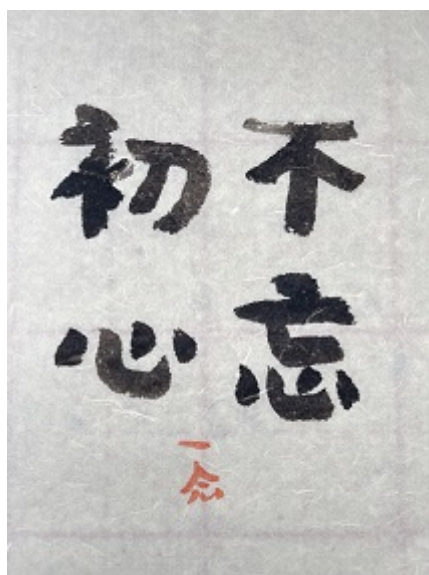 不忘
初心
一念